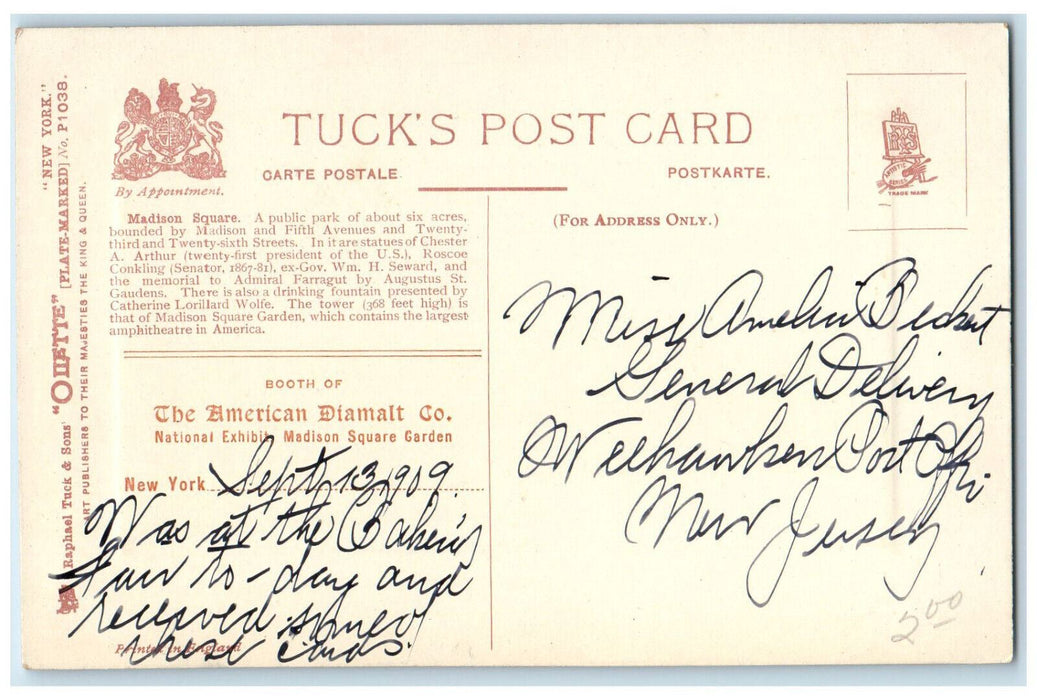 "NEW YORK."
Raphael Tuck & Sons' "ODETTE" [PLATE-MARKED] No. P1038.
ART PUBLISHERS TO THEIR MAJESTIES THE KING & QUEEN.
By Appointment.
TUCK'S POST CARD
CARTE POSTALE
POSTKARTE.
(FOR ADDRESS ONLY.)
ARTISTIC SERIES
TRADE MARK
Madison Square. A public park of about six acres,
bounded by Madison and Fifth Avenues and Twenty-
third and Twenty-sixth Streets. In it are statues of Chester
A. Arthur (twenty-first president of the U.S.), Roscoe
Conkling (Senator, 1867-81), ex-Gov. Wm. H. Seward, and
the memorial to Admiral Farragut by Augustus St.
Gaudens. There is also a drinking fountain presented by
Catherine Lorillard Wolfe. The tower (368 feet high) is
that of Madison Square Garden, which contains the largest
amphitheatre in America.
BOOTH OF
The American Diamalt Co.
National Exhibit, Madison Square Garden
New York Sept 13 1909.
Was at the Baker's
Fair to-day and
received some of
these cards.
Printed in England
Miss Amelia
General Delivery
Weehawken Post Offi
New Jersey
2.00